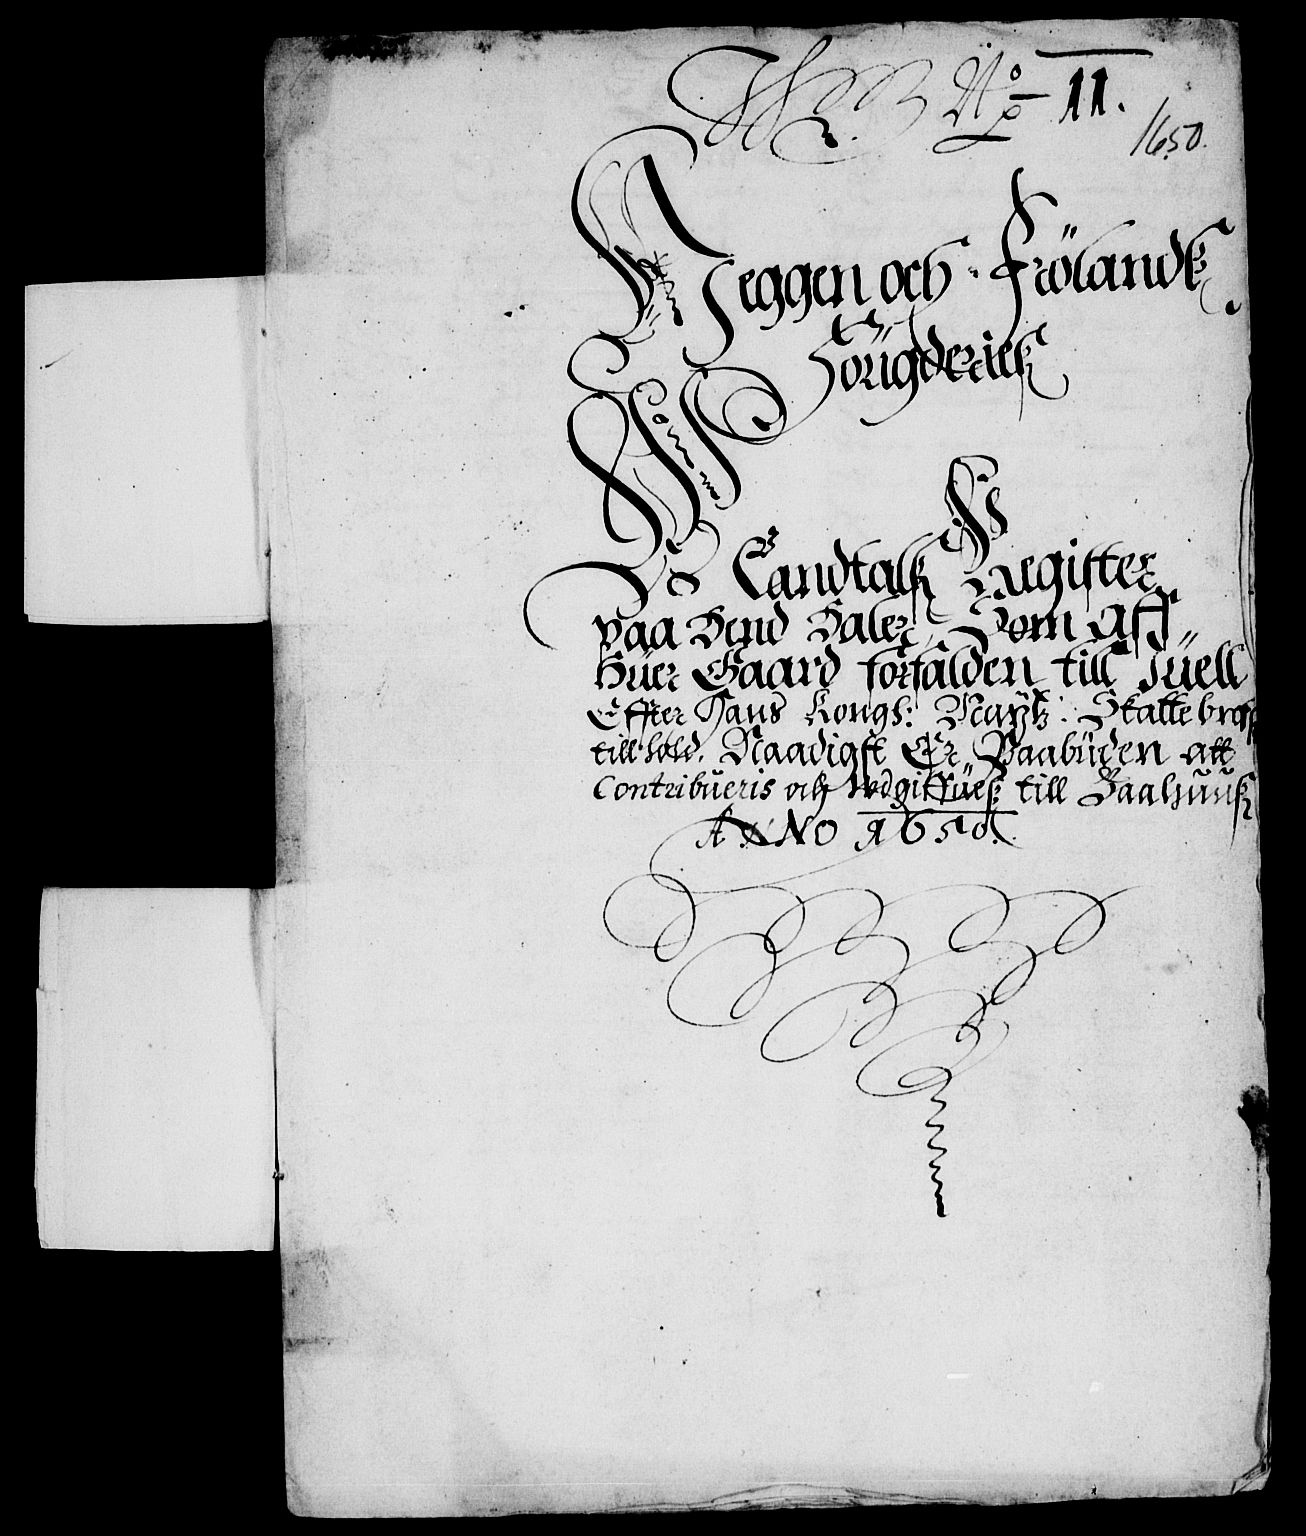 No 11.
1650.
Weggen och Frölandß
Sougderieß
Landtalß Register
paa Bend Daler Som aff
Huer Gaard forfalden till Juell
Effter Hans Kongl: Maytz: Skatte breffß
till hold. Naadigst Er Paabüden att
Contribueris och wdgiffüeß till Baahuuß
ANNO 1650.